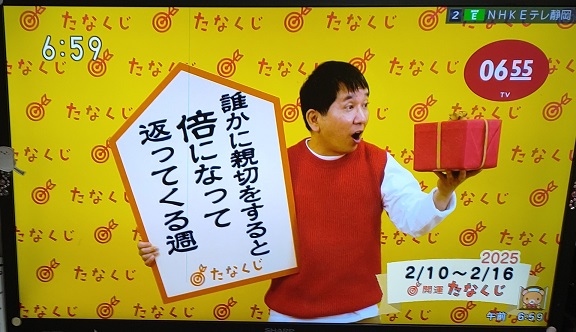 6:59
2 E NHKEテレ静岡
0655
TV
誰かに親切をすると
倍になって
返ってくる週
たなくじ
2025
2/10〜2/16
開運たなくじ
午前 6:59
SHARP
たなくじ
たなくじ
たなくじ
たなくじ
たなくじ
たなくじ